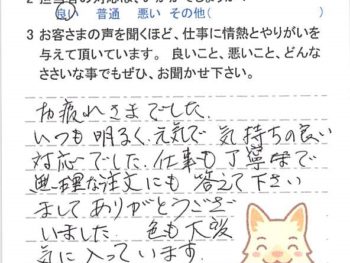 良い 普通 悪い その他(
3 お客さまの声を聞くほど、仕事に情熱とやりがいを
与えて頂いています。良いこと、悪いこと、どんな
ささいな事でもぜひ、お聞かせ下さい。
お疲れさまでした。
いつも明るく元気で気持ちの良い
対応でした。仕事も丁寧で
無理な注文にも答えて下さい
ましてありがとうござ
いました。色も大変
気に入っています。